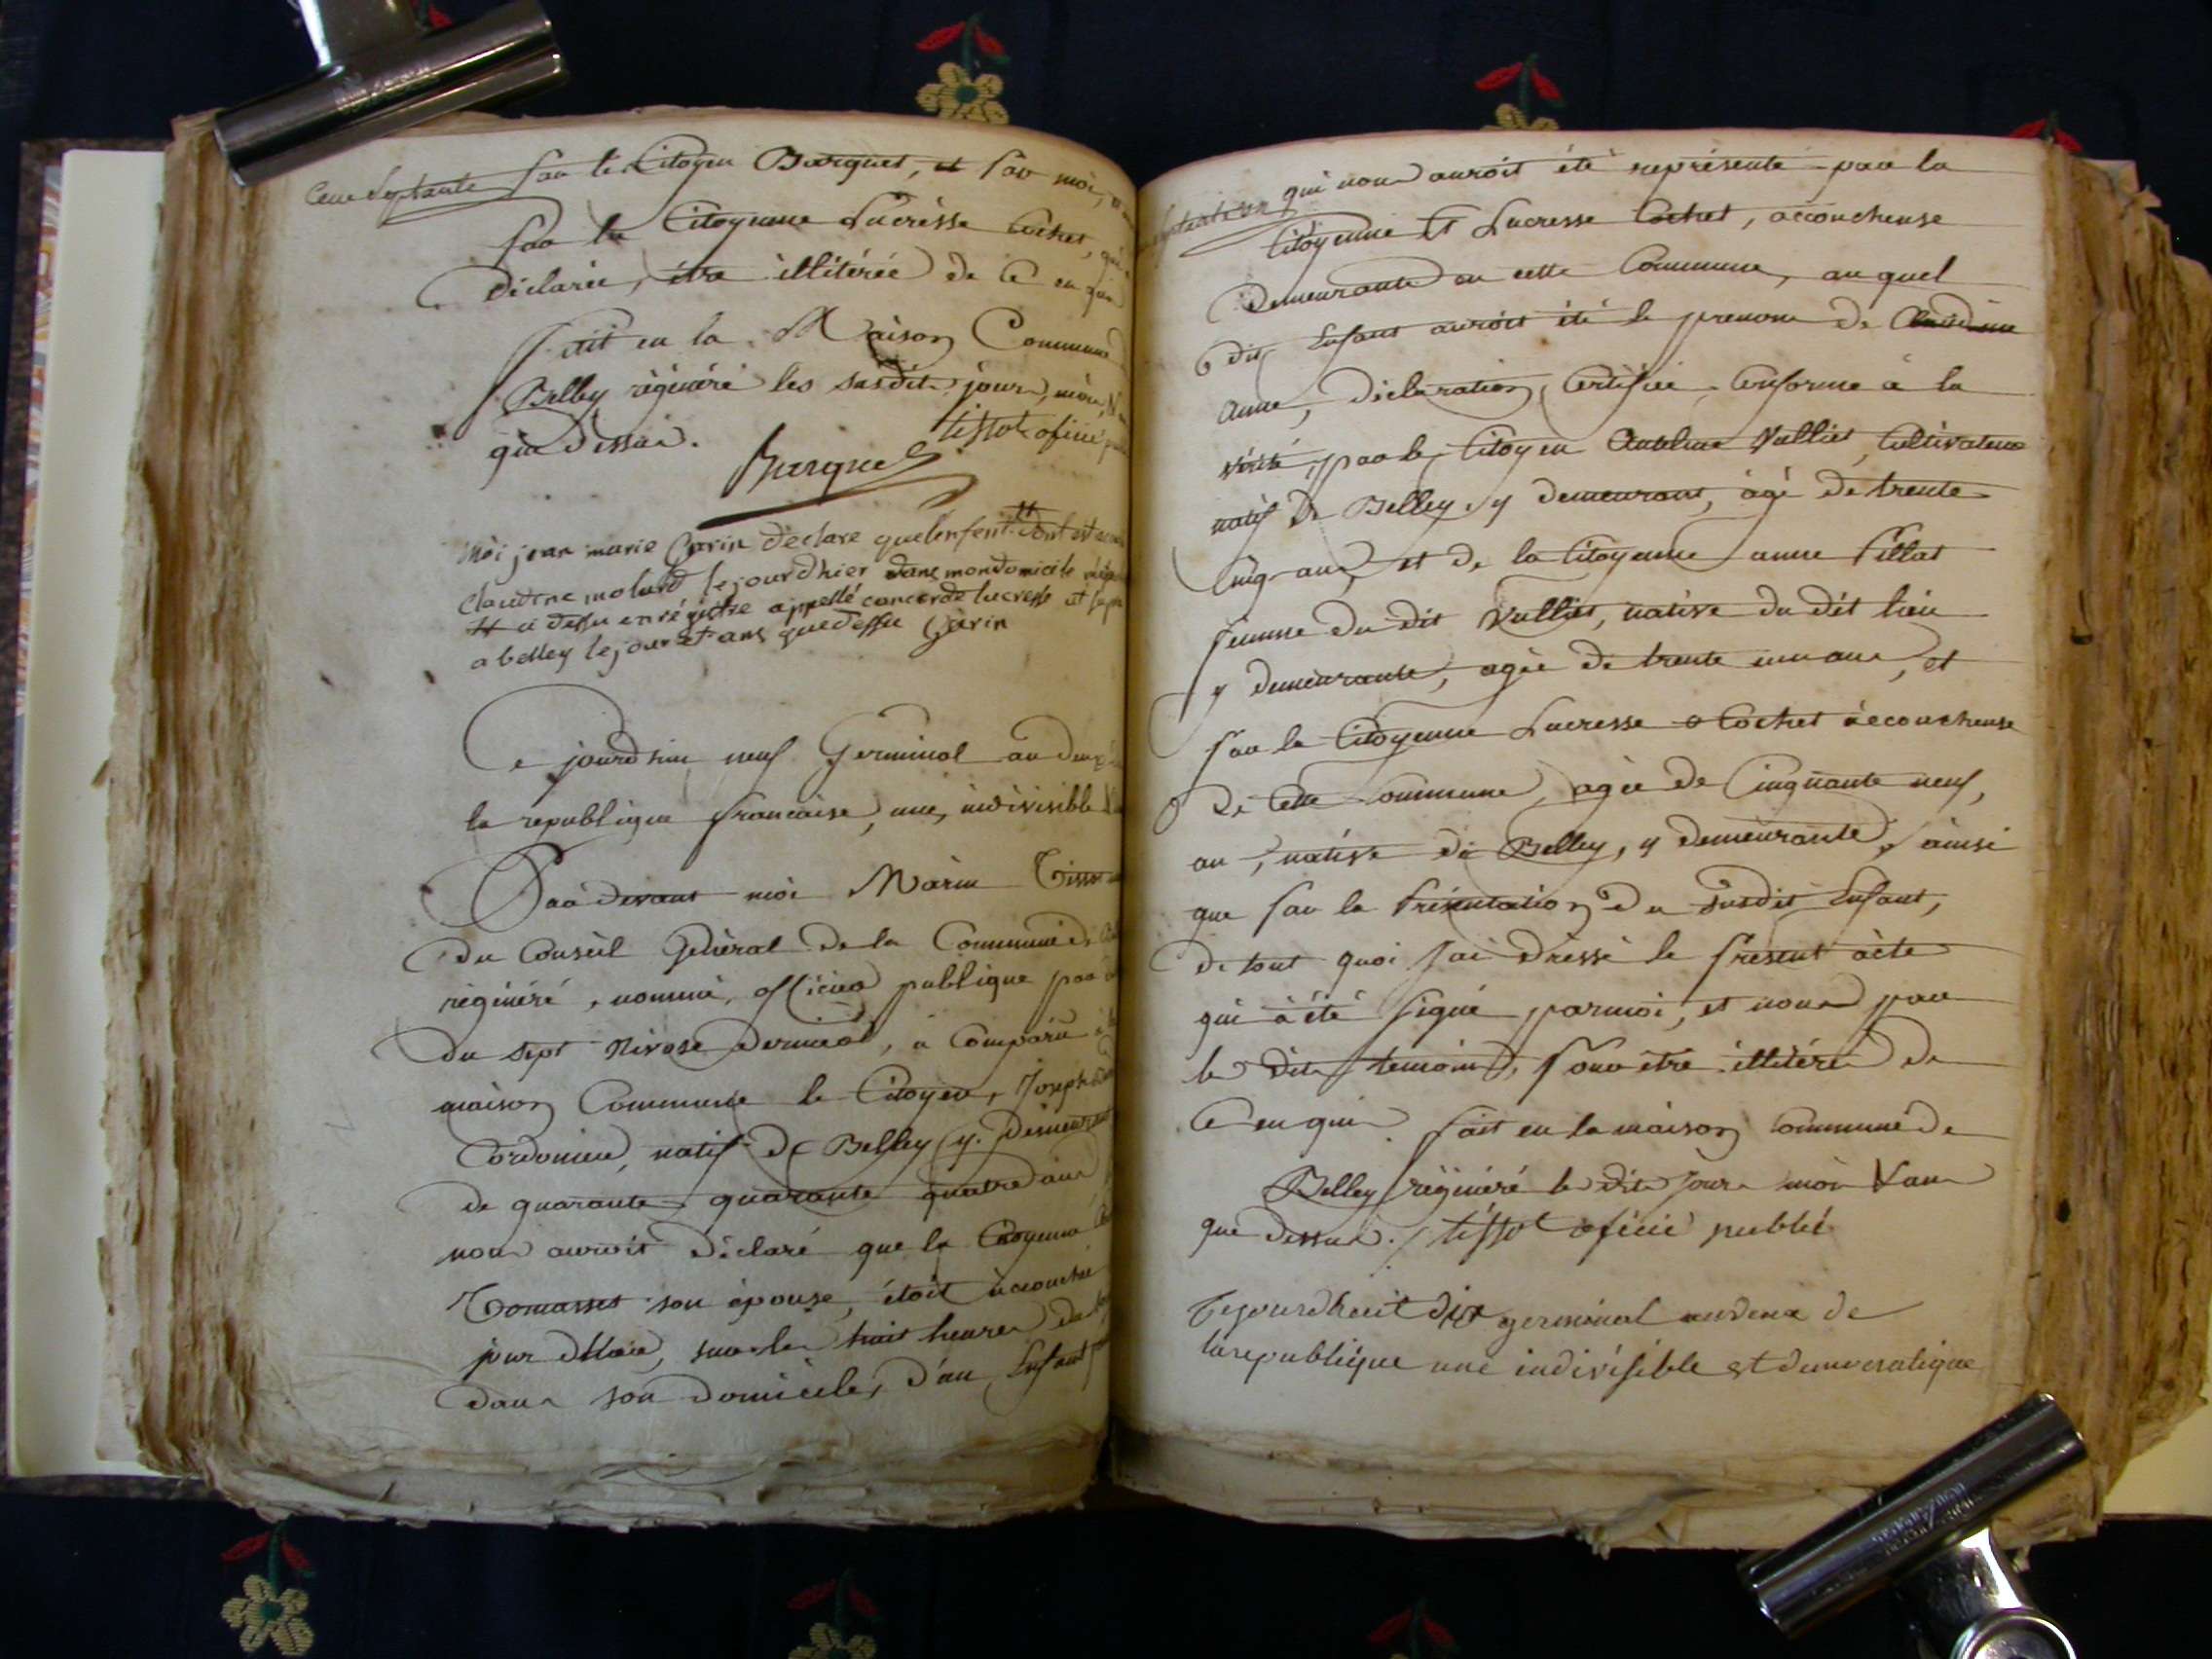 Cent Septante par le Citoyen Barquet, et par moi,
par la Citoyenne Lucrèsse Cochet, qui
déclarée, étre illitérée de ce enquis
fait en la Maison Commune
Belley régénéré les susdit jour, mois,
que dessus. tissot oficié
Barquet
moi jean marie Garin declare quelenfent # dont est
claudine molard lejourdhier dans mondomicile
# ci dessu enrégistre appellé concorde lucresse et
a belley lejour et ans que dessu Garin
Ce jourd'hui neuf Germinal an deux
la republique francaise, une, indivisible
Par devant moi Marin Tissot
du Conseil Général de la Commune de
régénéré, nommé, officier publique par
du sept Nivose dernier, a Comparu
maison Commune le Citoyen, Joseph
Cordonier, natif de Belley y. demeurant
de quarante quarante quatre ans
nous auroit déclaré que la Citoyenne
Tomasset son épouse, étoit accouchée
jour d'hier, sur les huit heures du
dans son domicile, d'un Enfant
qui nous auroit été représenté par la
Citoyenne Lucresse Cochet, accoucheuse
demeurante en cette Commune, au quel
dit Enfant auroit été le prenom de Claudine
Anne, déclaration Certifiée Conforme à la
vérité, par le Citoyen Anthelme Valliet, Cultivateur
natif de Belley, y demeurant, àgé de trente
cinq ans, et de la Citoyenne anne Pillat
femme du dit Valliet, native du dit lieu
y demeurante, agée de trente un ans, et
par la Citoyenne Lucresse Cochet àccoucheuse
de Cette Commune, agée de Cinquante neuf,
an, native de Belley, y demeurante, àinsi
que par la Présentation du susdit Enfant,
de tout quoi j'ai dréssé le présent àcte
qui à été signé parmoi, et non par
les dits temoins, pour être illitérés de
Ce enquis. fait en la maison Commune de
Belley régénéré les dits jour mois & an
que dessus. / tissot oficié publié
Cejourdhuit dix germinal andeux de
larepublique une indivisible et democratique